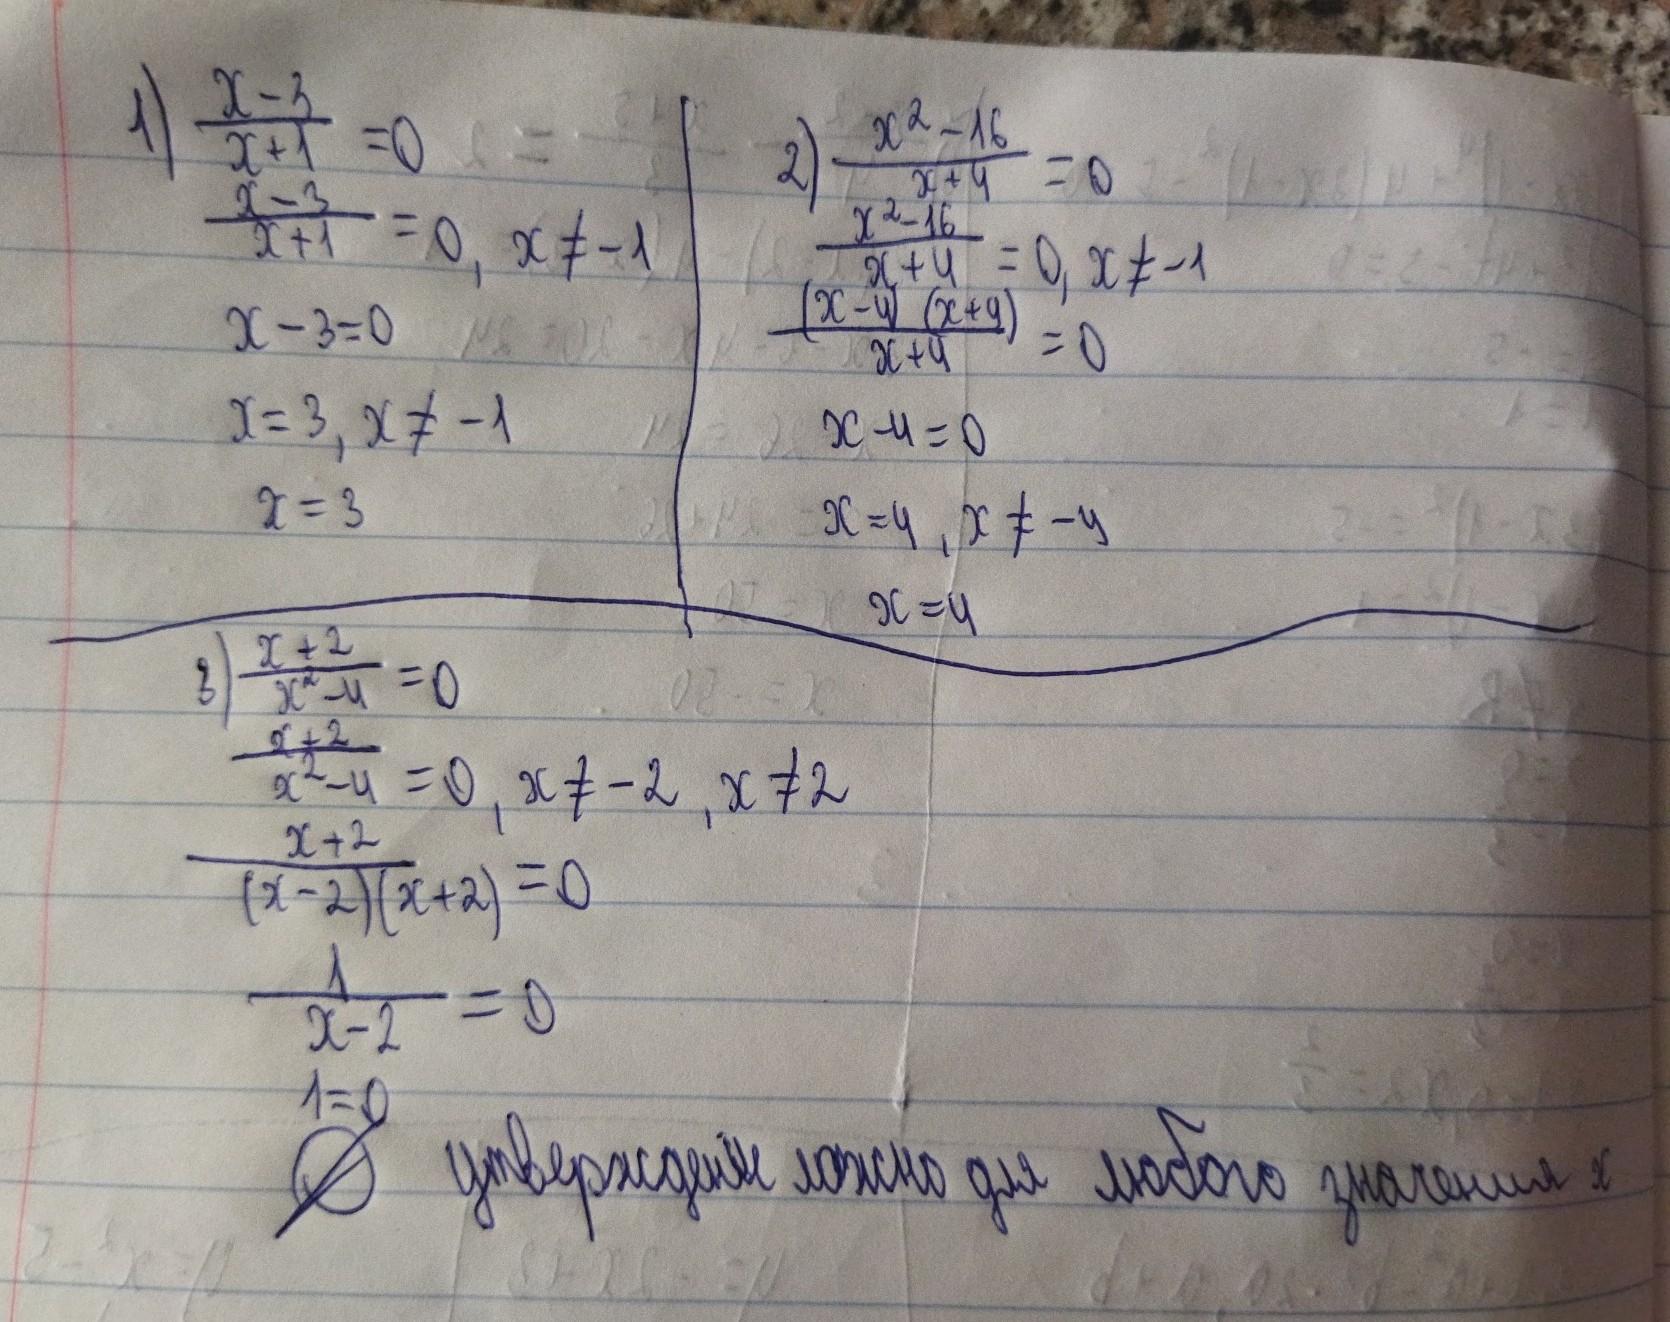 1) x-3/x+1 =0
x-3/x+1 =0, x≠-1
x-3=0
x=3, x≠-1
x=3
2) x²-16/x+4 =0
x²-16/x+4 =0, x≠-1
(x-4)(x+4)/x+4 =0
x-4=0
x=4, x≠-4
x=4
3) x+2/x²-4 =0
x+2/x²-4 =0, x≠-2, x≠2
x+2/(x-2)(x+2) =0
1/x-2 =0
1=0
∅ утверждение ложно для любого значения x